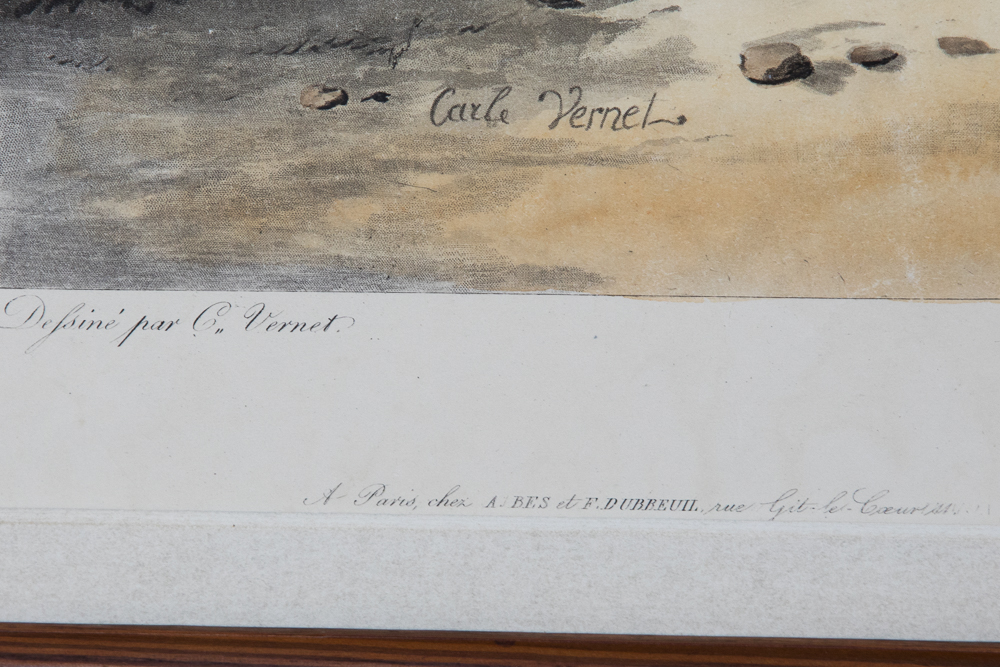 Carle Vernet.
Deſsiné par C,, Vernet.
A Paris, chez A. BES et F. DUBREUIL, rue Gît-le-Cœur